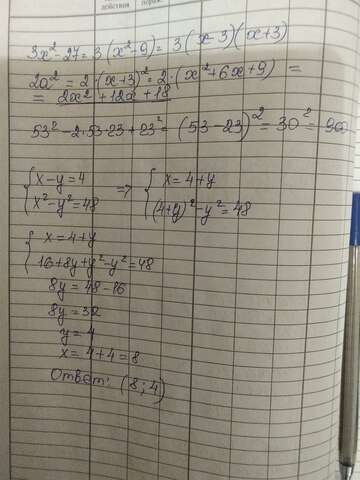 действия
3x² - 27 = 3(x² - 9) = 3(x - 3)(x + 3)
2a² = 2·(x+3)² = 2·(x² + 6x + 9) =
= 2x² + 12x + 18
53² - 2·53·23 + 23² = (53 - 23)² = 30² = 900
{ x - y = 4 ⇒ { x = 4 + y
{ x² - y² = 48 { (4+y)² - y² = 48
{ x = 4 + y
{ 16 + 8y + y² - y² = 48
8y = 48 - 16
8y = 32
y = 4
x = 4 + 4 = 8
Ответ: (8; 4)